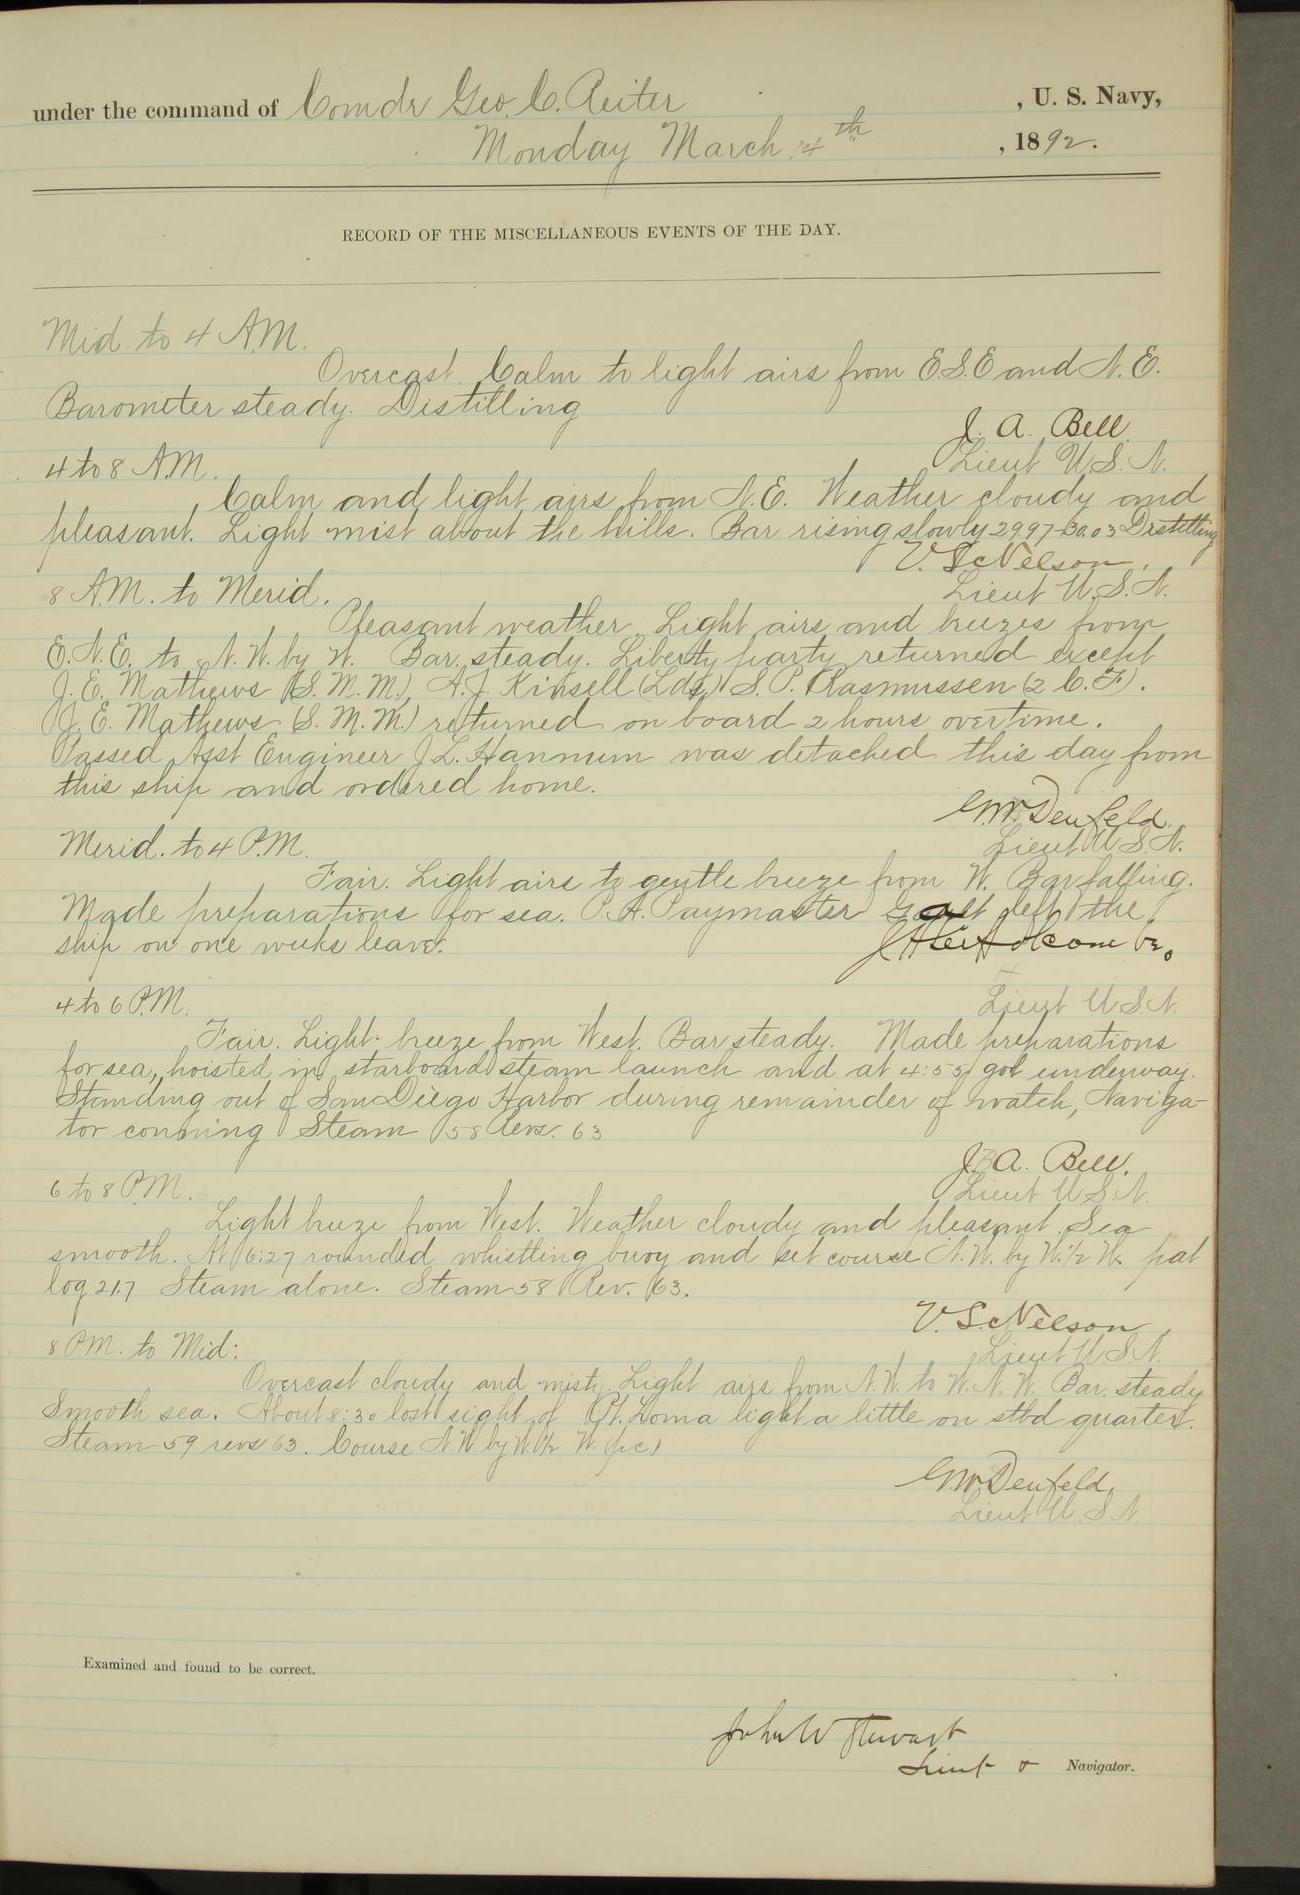 under the command of Comdr Geo. C. Reiter , U. S. Navy,
Monday March 14th , 1892.
RECORD OF THE MISCELLANEOUS EVENTS OF THE DAY.
Mid. to 4 A.M.
Overcast. Calm to light airs from E.S.E and N.E.
Barometer steady. Distilling
J. A. Bell
Lieut U.S.N.
4 to 8 A.M.
Calm and light airs from N.E. Weather cloudy and
pleasant. Light mist about the hills. Bar rising slowly 29.97-30.03 Distilling
V. S. Nelson.
Lieut U.S.N.
8 A.M. to Merid.
Pleasant weather. Light airs and breezes from
E.N.E. to N.W. by W. Bar. steady. Liberty party returned except
J. E. Mathews (S.M.M.), A.J. Kinsell (Lds) S. P. Rasmussen (2 C.F.).
J. E. Mathews (S.M.M.) returned on board 2 hours overtime.
Passed Asst Engineer J L. Hannum was detached this day from
this ship and ordered home.
G.W. Denfeld
Lieut U.S.N.
Merid. to 4 P.M.
Fair. Light airs to gentle breeze from W. Bar falling.
Made preparations for sea. P.A. Paymaster Galt left the
ship on one weeks leave.
Lieut U S N.
4 to 6 P.M.
Fair. Light breeze from West. Bar steady. Made preparations
for sea, hoisted in starboard steam launch and at 4:55 got underway.
Standing out of San Diego Harbor during remainder of watch, Naviga-
tor conning Steam 58 Revs. 63
J. A. Bell.
Lieut U S N.
6 to 8 P.M.
Light breeze from West. Weather cloudy and pleasant. Sea
smooth. At 6:27 rounded whistling buoy and set course N.W. by W. 1/2 W. pat
log 21.7 Steam alone. Steam 58 Rev. 63.
V. S. Nelson
Lieut U S N.
8 P.M. to Mid:
Overcast cloudy and misty. Light airs from N.W. to W.N.W. Bar. steady
Smooth sea. About 8:30 lost sight of Pt. Loma light a little on stbd quarter.
Steam 59 revs 63. Course N.W. by W. 1/2 W. (p.c.)
G.W. Denfeld.
Lieut U.S.N.
Examined and found to be correct.
John W Stewart
Lieut & Navigator.